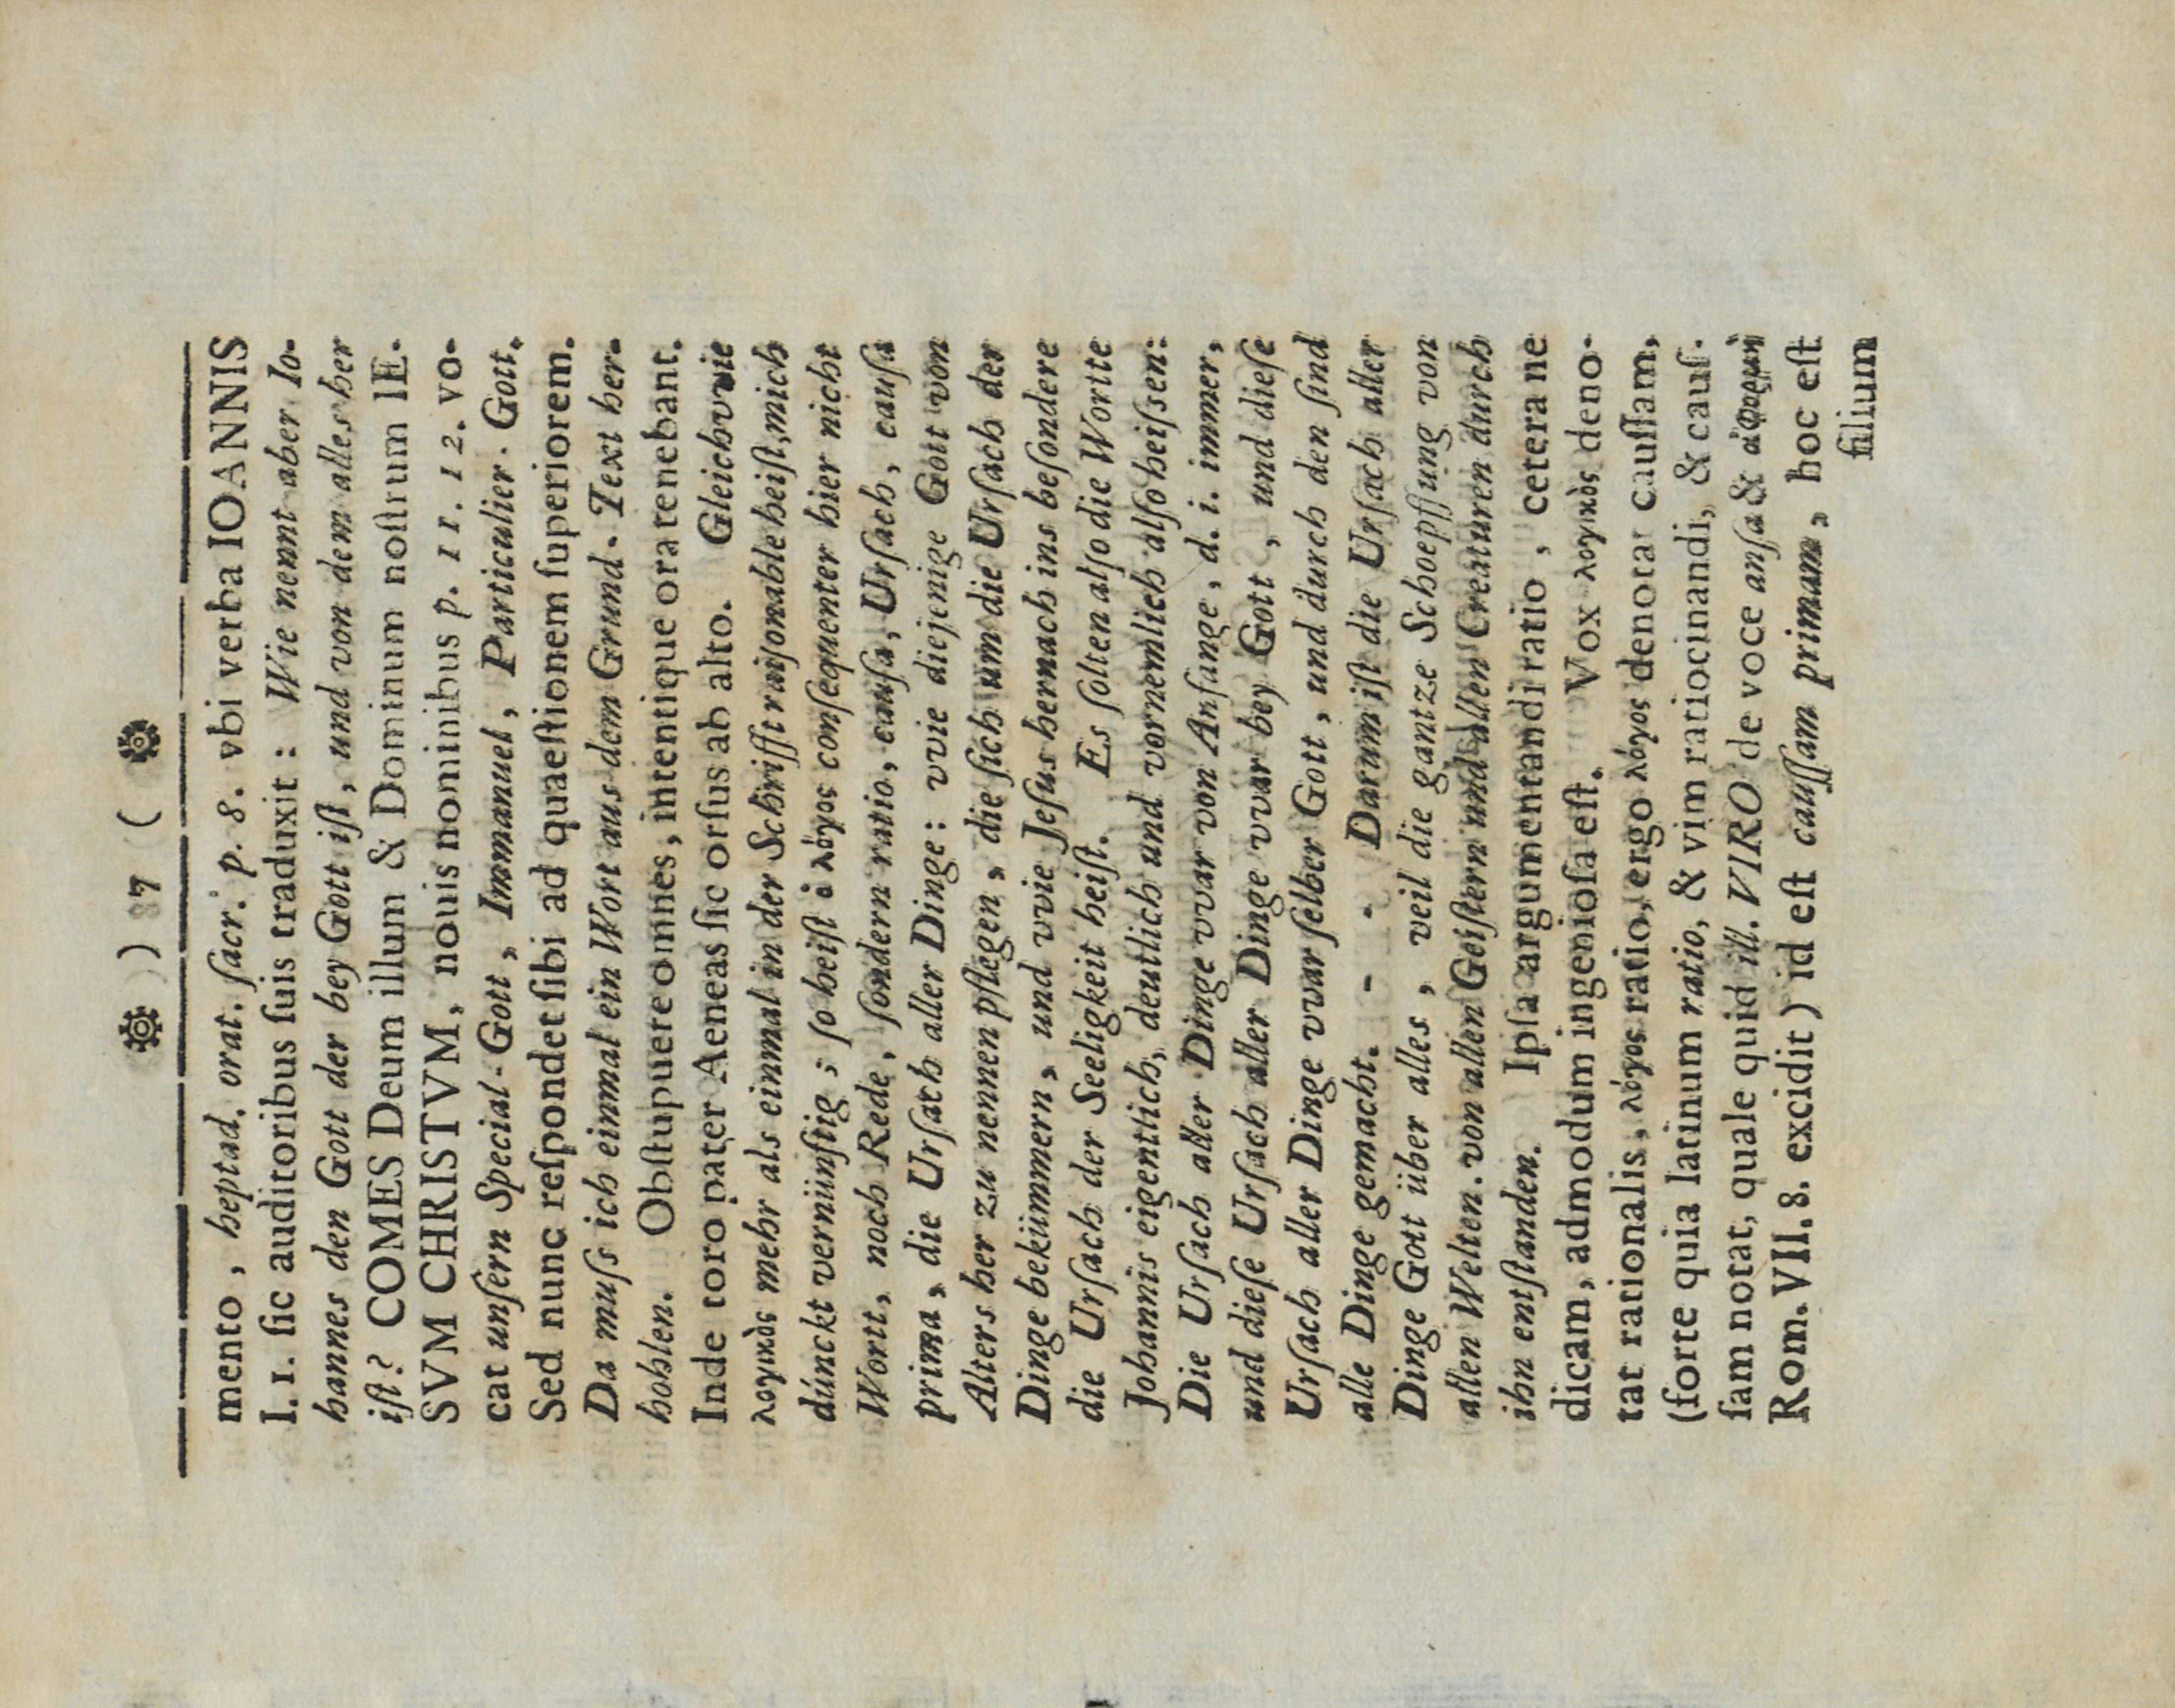 ❁ ) 87 ( ❁
mento, heptad. orat. ſacr. p. 8. vbi verba IOANNIS
I. 1. ſic auditoribus ſuis traduxit: Wie nennt aber Io-
hannes den Gott der bey Gott iſt, und von dem alles her
iſt? COMES Deum illum & Dominum noſtrum IE-
SVM CHRISTVM, nouis nominibus p. 11. 12. vo-
cat unſern Special-Gott, Immanuel, Particulier-Gott.
Sed nunc reſpondet ſibi ad quaeſtionem ſuperiorem.
Da muſs ich einmal ein Wort aus dem Grund-Text her-
hohlen. Obſtupuere omnes, intentique ora tenebant.
Inde toro pater Aeneas ſic orſus ab alto. Gleichvvie
λογικὸς mehr als einmal in der Schrifft raiſonable heiſt, mich
dúnckt vernünftig; ſo heiſt ὁ λόγος conſequenter hier nicht
Wortt, noch Rede, ſondern ratio, cauſa, Urſach, cauſa
prima, die Urſach aller Dinge: vvie diejenige Gott von
Alters her zu nennen pflegen, die ſich um die Urſach der
Dinge bekümmern, und vvie Jeſus hernach ins beſondere
die Urſach der Seeligkeit heiſt. Es ſolten alſo die Wortte
Johannis eigentlich, deutlich und vornemlich alſo heiſsen:
Die Urſach aller Dinge vvar von Anfange, d. i. immer,
und dieſe Urſach aller Dinge vvar bey Gott, und dieſe
Urſach aller Dinge vvar ſelber Gott, und durch den ſind
alle Dinge gemacht. - - - Darum iſt die Urſach aller
Dinge Gott über alles, veil die gantze Schoepffung von
allen Welten. von allen Geiſtern und allen Creaturen durch
ihn entſtanden. Ipſa argumentandi ratio, cetera ne
dicam, admodum ingenioſa eſt. Vox λογικὸς deno-
tat rationalis, λόγος ratio, ergo λόγος denotat cauſſam,
(forte quia latinum ratio, & vim ratiocinandi, & cauſ-
ſam notat, quale quid ill. VIRO de voce anſa & ἀφορμὴ
Rom. VII. 8. excidit) id eſt cauſſam primam, hoc eſt
filium